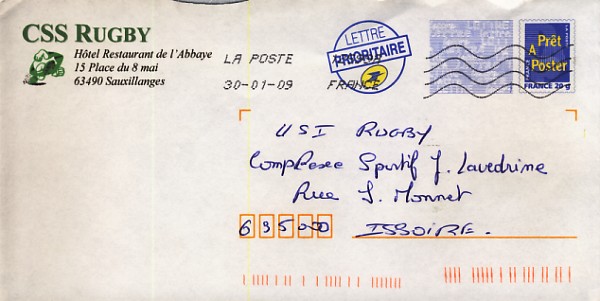 CSS RUGBY
Hôtel Restaurant de l'Abbaye
15 Place du 8 mai
63490 Sauxillanges
LA POSTE
30-01-09 FRANCE
LETTRE
PRIORITAIRE
Prêt
A
Poster
FRANCE 20 g
USI RUGBY
Complexe Sportif J. Lavedrine
Rue J. Monnet
63500 ISSOIRE.